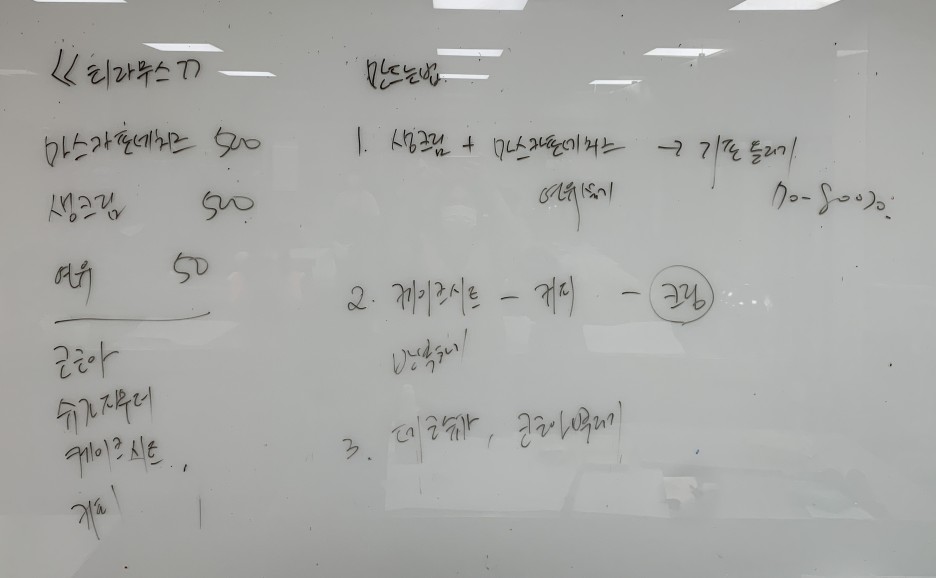 <<티라무스>>
마스카포네치즈 500
생크림 500
연유 50
코코아
슈가파우더
케이크시트
커피
만드는법
1. 생크림 + 마스카포네치즈 → 거품 돌리기
연유넣기
70-80%
2. 케이크시트 - 커피 - 크림
반복2회
3. 데코슈가, 코코아뿌리기